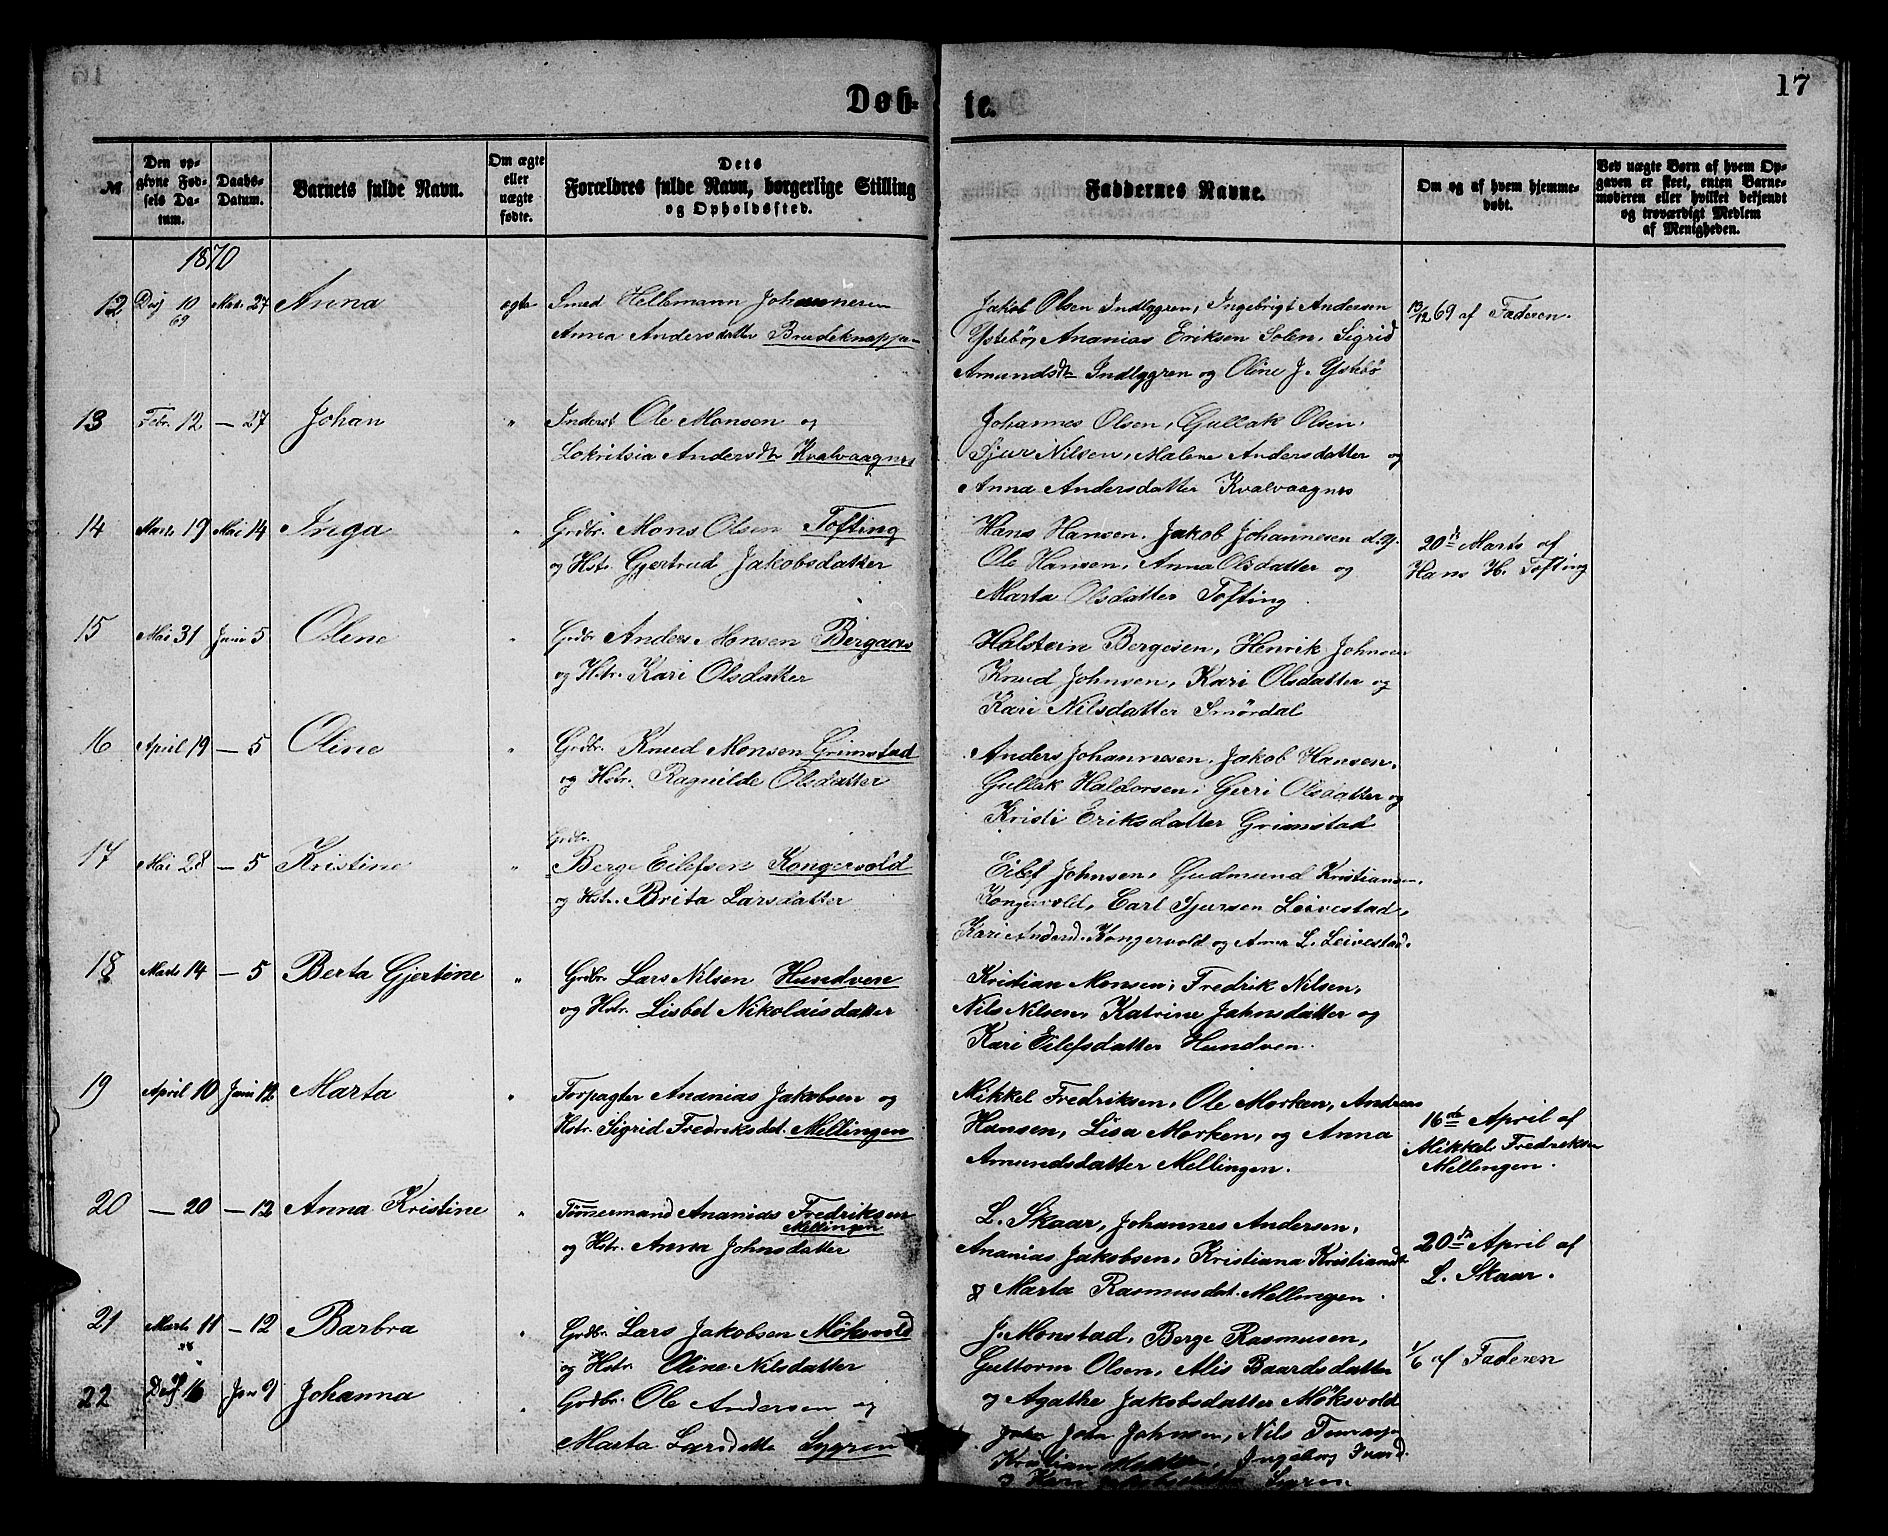 17
Døb-te.
№
Den op-
givne Fød-
sels Da-
tum.
Daabs-
Datum.
Barnets fulde Navn.
Om ægte
eller
uægte
fødte.
Dets
Forældres fulde Navn, borgerlige Stilling
og Opholdssted.
Faddernes Navne.
Om og af hvem hjemme-
døbt.
Ved uægte Børn af hvem Op-
gaven er skeet, enten Barne-
moderen eller hvilket bekjendt
og troværdigt Medlem
af Menigheden.
1870
12 10 69 Marts 27 Anna ægte Smed Hellemann Johannesen
Anna Andersdatter
Jakob Olsen Indlyggren, Ingebrigt Andersen
Ystebø, Ananias Eriksen Solen, Sigrid
Amundsdtr Indlyggren og Oline J. Ystebø
13/12 69 af Faderen.
13 Febr. 12 — 27 Johan " Inderst Ole Monsen og
Lokritsia Andersdtr Kvalvaagnes
Johannes Olsen, Gullak Olsen,
Sjur Nilsen, Malene Andersdatter og
Anna Andersdatter Kvalvaagnes
14 Marts 19 Mai 14 Inga " Grdbr. Mons Olsen Tofting
og Hstr. Gjertrud Jakobsdatter
Hans Hansen, Jakob Johannesen d.y.
Ole Hansen, Anna Olsdatter og
Marta Olsdatter Tofting.
20de Marts af
Hans H. Tofting
15 Mai 31 Juni 5 Olene " Grdbr Anders Monsen Bergaas
og Hstr. Kari Olsdatter
Halstein Bergesen, Henrik Johnsen
Knud Johnsen, Kari Olsdatter og
Kari Nilsdatter Smørdal
16 April 19 — 5 Oline " Grdbr. Knud Monsen Grimstad
og Hstr. Ragnilde Olsdatter
Anders Johannesen, Jakob Hansen,
Gullak Haldorsen, Gerri Olsdatter og
Kristi Eriksdatter Grimstad
17 Mai 28 — 5 Kristine " Grdbr.
Berge Eilefsen Kongsvold
og Hstr. Brita Larsdatter
Eilef Johnsen, Gudmund Kristiansen,
Kongsvold, Carl Sjursen Leivestad,
Kari Andersd. Kongsvold og Anna L. Leivestad.
18 Marts 14 — 5 Berta Gjertine " Grdbr Lars Nilsen Hundven
og Hstr. Lisbet Nikolaisdatter
Kristian Monsen, Fredrik Nilsen,
Nils Nilsen, Katrine Jahnsdatter og
Kari Eilefsdatter Hundven.
19 April 10 Juni 12 Marta " Forpagter Ananias Jakobsen og
Hstr. Sigrid Fredriksdet. Mellingen
Mikkel Fredriksen, Ole Morken, Andreas
Hansen, Lisa Morken, og Anna
Amundsdatter Mellingen.
16de April af
Mikkel Fredriksen
Mellingen.
20 — 20 — 12 Anna Kristine " Tømmermand Ananias Fredriksen
Mellingen
og Hstr. Anna Johnsdatter
L. Skaar, Johannes Andersen,
Ananias Jakobsen, Kristiana Kristiandt
& Marta Rasmusdat. Mellingen.
20de April af
L. Skaar.
21 Marts 11 — 12 Barbra " Grdbr. Lars Jakobsen Møksvold
og Hstr. Oline Nilsdatter
J. Monstad, Berge Rasmusen,
Guttorm Olsen, Alis Baardsdatter
og Agathe Jakobsdatter Møksvold
1/6 af Faderen
22 16 Jan 9 Johanna " Grdbr. Ole Andersen og
Marta Larsdatte Sygren
John Johnsen, Nils
Kristian Ingeborg
og Sygren